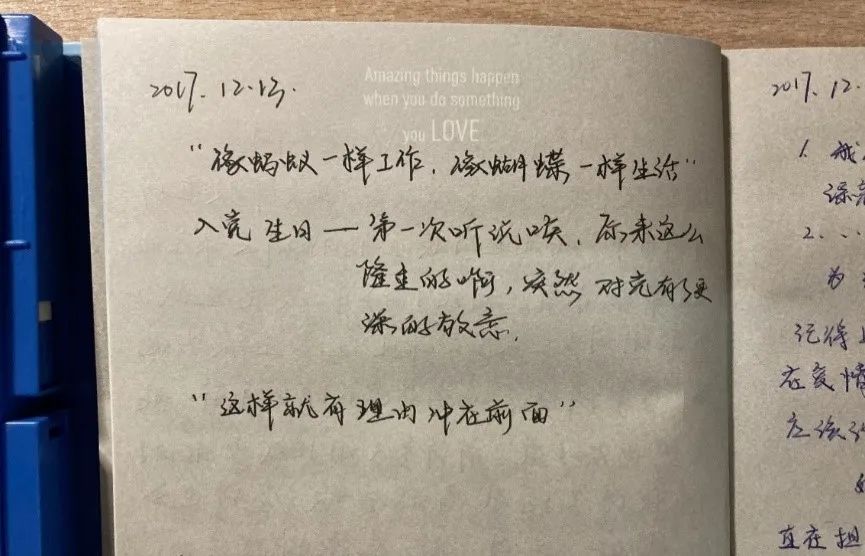 Amazing things happen
when you do something
you LOVE
2017. 12.13.
“像蚂蚁一样工作，像蝴蝶一样生活”
入党生日 — 第一次听说唉，原来这么
隆重的啊，突然对党有了更
深的敬意.
“这样就有理由冲在前面”
2017. 12.
1.
2. ...
为
记得
在爱情
应该
直在担